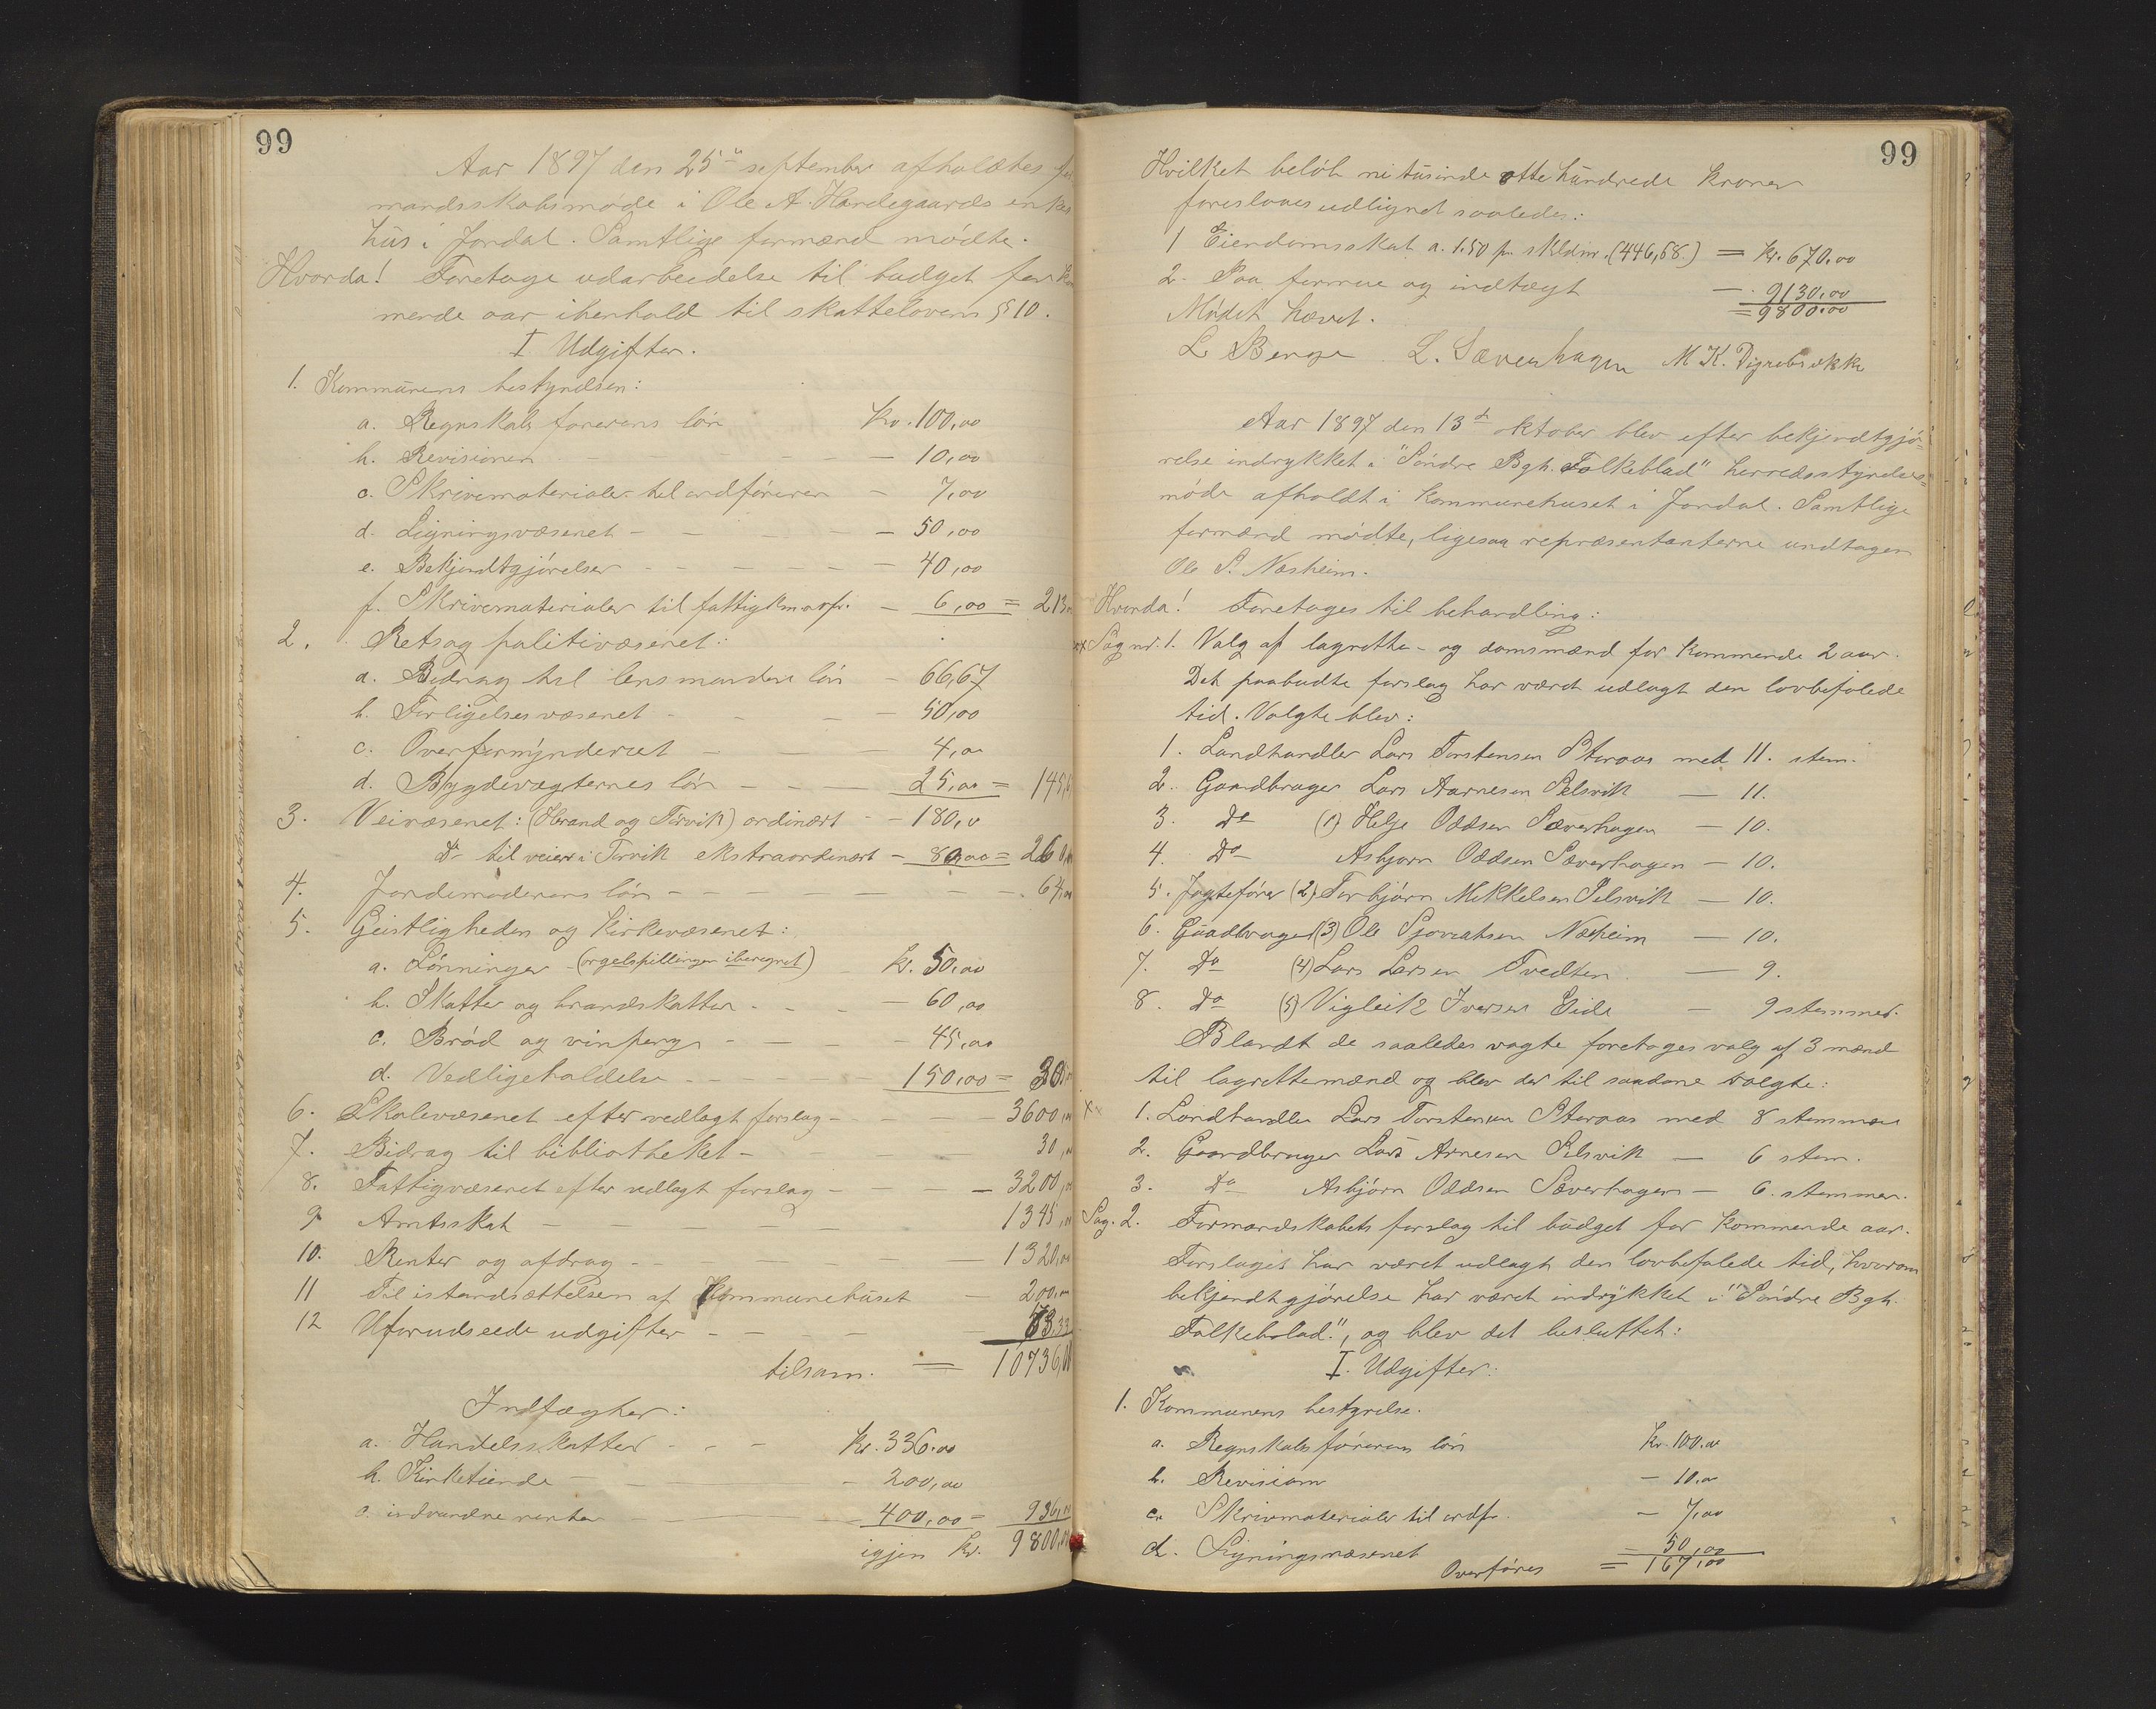 99
Aar 1897 den 25de september afholdtes for
mandsskabsmøde i Ole A. Hardegaards enkes
hus i Jondal. Samtlige formænd mødte.
Hvorda! Foretoge udarbeidelse til budget for kom
mende aar ihenhold til skattelovens § 10.
I Udgifter.
1. Kommunens bestyrelsen:
a. Regnskabsførerens løn Kr. 100,00
b. Revisionen - 10,00
c. Skrivematerialer til ordføreren - 7,00
d. Ligningsvæsenet - 50,00
e. Bekjendtgjørelser - 40,00
f. Skrivematerialer til fattigkm. ordfr. - 6,00 = 213
2. Retsog politivæsenet:
a. Bidrag til lensmandens løn - 66,67
b. Forligelsesvæsenet - 50,00
c. Overformynderiet - 4,00
d. Bygdevægternes løn - 25,00 = 145,6
3. Veivæsenet: (Herand og Torvik) ordinært - 180,0
Do til veien i Torvik ekstraordinært - 80,00 = 260,00
4. Jordemoderens løn - 64,00
5. Geistligheden og kirkevæsenet:
a. Lønninger (orgelspillingen iberegnet) Kr. 50,00
b. Skatter og brandskatter - 60,00
c. Brød og vinpenge - 45,00
d. Vedligeholdelse - 150,00 = 305
6. Skolevæsenet efter vedlagt forslag - 3600,00
7. Bidrag til bibliotheket - 30,00
8. Fattigvæsenet efter vedlagt forslag - 3200,00
9 Amtsskat - 1345,00
10. Renter og afdrag - 1320,00
11 Til istandsættelsen af Kommunehuset - 200,00
12 Uforudseede udgifter - 53,33
tilsam. = 10736,00
Indtægter:
a. Handelsskatter - Kr. 336.00
b. Kirketiende - 200,00
c. indvundne renter - 400,00 = 936,00
igjen Kr. 9800,00
99
Hvilket beløb nitusinde otte hundrede kroner
foreslaaes udlignet saaledes:
1 Eiendomsskat a. 1.50 pr. skldmr. (446,58.) = Kr. 670.00
2. Paa formue og indtægt - 9130,00
Mødet hævet. = 9800.00
L Berge L. Sæverhagen M K. Digrebrekke
Aar 1897 den 13de oktober blev efter bekjendtgjø-
relse indrykket i "Søndre Bgh. Folkeblad" herredsstyrelses-
møde afholdt i Kommunehuset i Jondal. Samtlige
formænd mødte, ligesaa repræsentanterne undtagen
Ole S. Næsheim.
Hvorda! Foretages til behandling:
xx Sag nr. 1. Valg af lagrette- og domsmænd for kommende 2 aar.
Det paabudte forslag har været udlagt den lovbefalede
tid. Valgte blev:
1. Landhandler Lars Torstensen Steraas med 11. stem.
2. Gaardbruger Lars Aarnesen Selsvik - 11.
3. Do (1) Helje Oddsen Sæverhagen - 10.
4. Do Asbjørn Oddsen Sæverhagen - 10.
5. Jagtefører (2) Torbjørn Mikkelsen Selsvik - 10.
6. Gaardbruger (3) Ole Sjovatsen Næsheim - 10.
7. Do (4) Lars Larsen Tvedten - 9.
8. Do (5) Vigleik Iversen Eide - 9 stemmer.
Blandt de saaledes vagte foretoges valg af 3 mænd
til lagrettemænd og blev der til saadane valgte:
xx 1. Landhandler Lars Torstensen Steraas med 8 stemmer
2. Gaardbruger Lars Arnesen Selsvik - 6 stem.
3. Do Asbjørn Oddsen Sæverhagen - 6. stemmer.
Sag. 2. Formandskabets forslag til budget for kommende aar.
Forslaget har været udlagt den lovbefalede tid, hvorom
bekjendtgjørelse har været indrykket i "Søndre Bgh.
Folkeblad.", og blev det besluttet:
I. Udgifter:
1. Kommunens bestyrelse.
a. Regnskabsførerens løn Kr. 100.00
b. Revision - 10.00
c. Skrivematerialer til ordfr. - 7,00
d. Ligningsvæsenet - 50,00
Overføres = 167,00